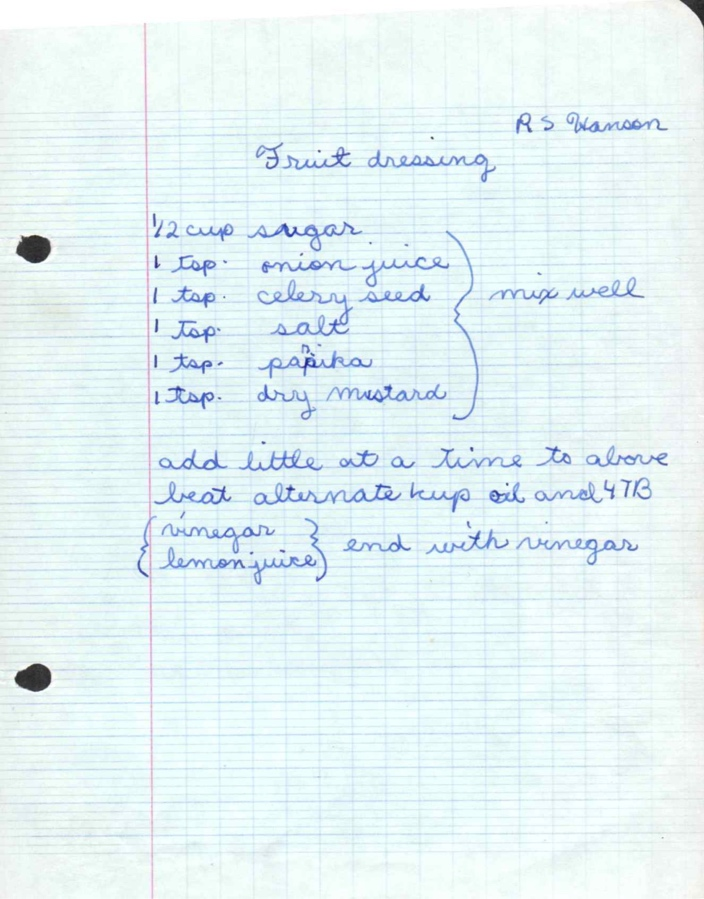 R S Hanson
Fruit dressing
1/2 cup sugar
1 tsp. onion juice
1 tsp. celery seed } mix well
1 tsp. salt
1 tsp. paprika
1 tsp. dry mustard
add little at a time to above
beat alternate 1cup oil and 4 TB
{vinegar
lemon juice} end with vinegar